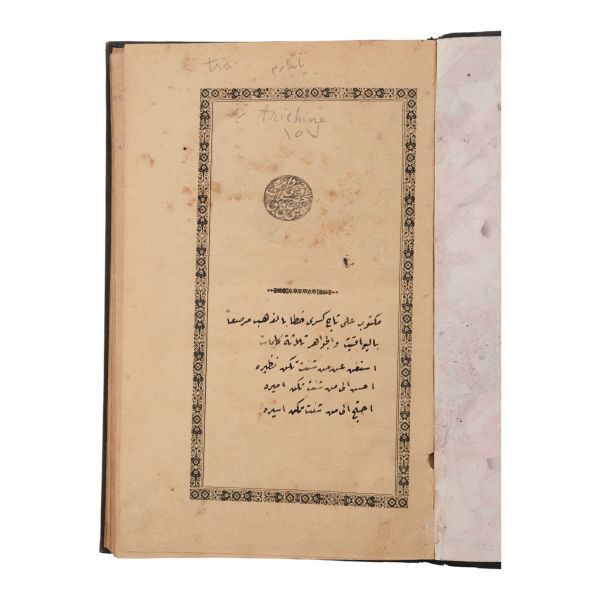 tra
trichine
١٥٧
مكتوب على تاج كسرى خطا بالذهب مرصعاً
باليواقيت والجواهر ثلاثة كلمات
استغن عن من شئت تكن نظيره
احسن الى من شئت تكن اميره
احتج الى من شئت تكن اسيره